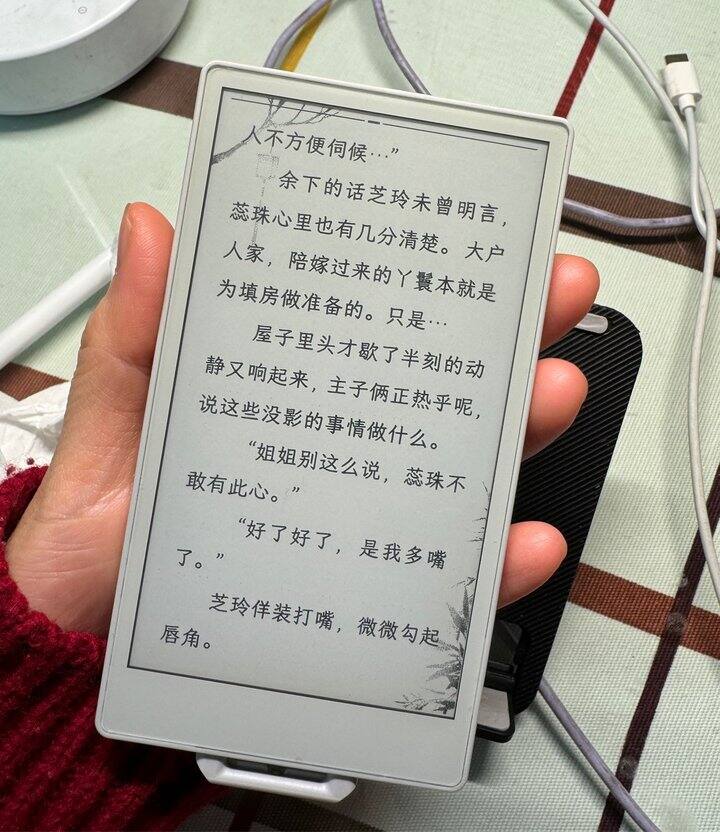 人不方便伺候…”
余下的话芝玲未曾明言，
蕊珠心里也有几分清楚。大户
人家，陪嫁过来的丫鬟本就是
为填房做准备的。只是…
屋子里头才歇了半刻的动
静又响起来，主子俩正热乎呢，
说这些没影的事情做什么。
“姐姐别这么说，蕊珠不
敢有此心。”
“好了好了，是我多嘴
了。”
芝玲佯装打嘴，微微勾起
唇角。